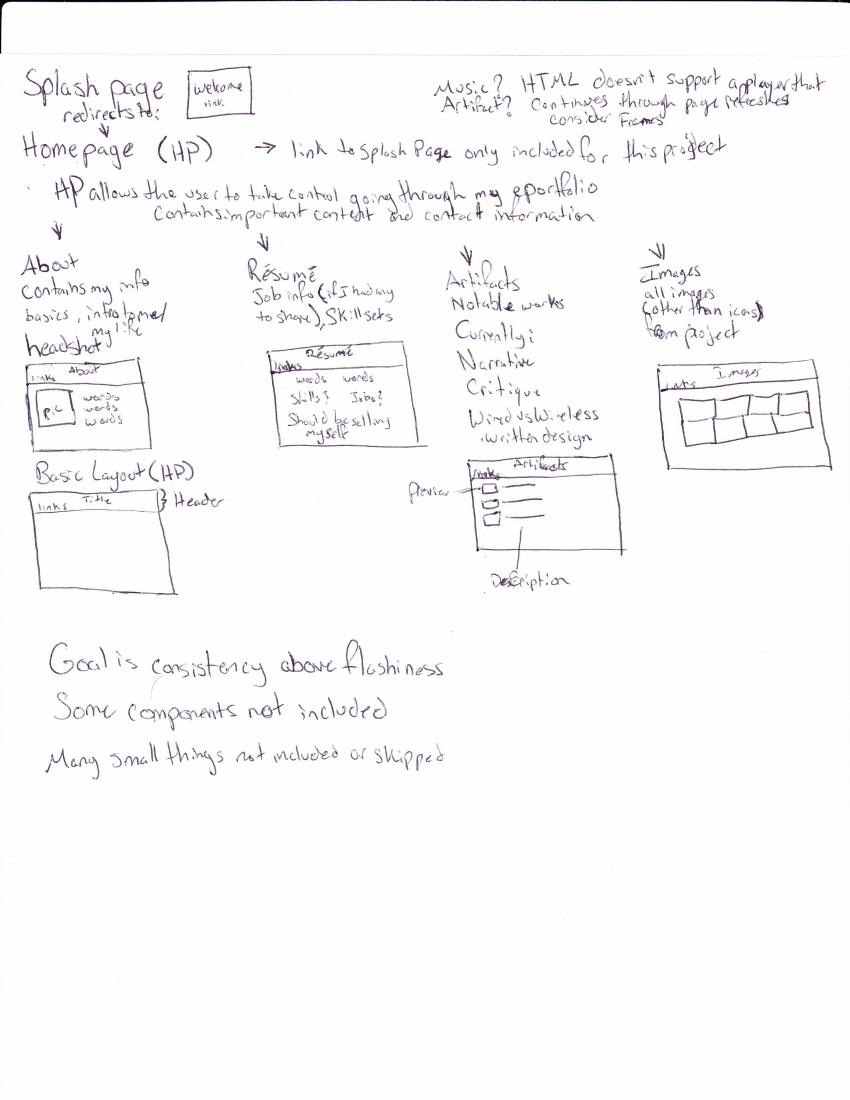 Splash page
redirects to:
welcome
link
Music? HTML doesn't support a player that
Artifact? Continues through page refreshes
consider Frames
Homepage (HP) → link to Splash Page only included for this project
HP allows the user to take control going through my eportfolio
Contains important content and contact information
About
Contains my info
basics, intro to me/
my life
headshot
About
links
pic
words
words
words
Résumé
Job info (if I had any
to share), Skill sets
Résumé
links
words words
Skills? Jobs?
Should be selling
myself
Artifacts
Notable works
Currently:
Narrative
Critique
Wired vs Wireless
written design
Artifacts
links
Preview
Description
Images
all images
(other than icons)
from project
Images
links
Basic Layout (HP)
Title
links
Header
Goal is consistency above flashiness
Some components not included
Many small things not included or skipped